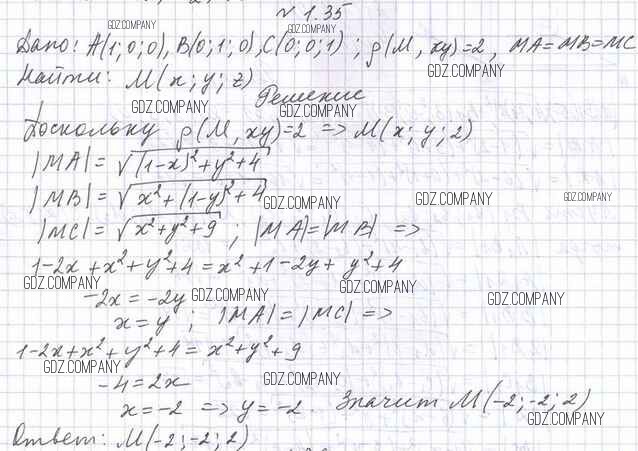 № 1.35
GDZ.COMPANY GDZ.COMPANY
Дано: A(1; 0; 0), B(0; 1; 0), C(0; 0; 1) ; ρ(M, xy)=2, MA=MB=MC
GDZ.COMPANY
Найти: M(x; y; z)
Решение
GDZ.COMPANY GDZ.COMPANY
Поскольку ρ(M, xy)=2 => M(x; y; 2)
|MA| = √(1-x)²+y²+4
|MB| = √x²+(1-y)²+4
GDZ.COMPANY GDZ.COMPANY GDZ.COMPANY
|MC| = √x²+y²+9 ; |MA|=|MB| =>
1-2x+x²+y²+4=x²+1-2y+y²+4
GDZ.COMPANY GDZ.COMPANY GDZ.COMPANY
-2x=-2y
x=y ; |MA|=|MC| =>
1-2x+x²+y²+4=x²+y²+9
GDZ.COMPANY GDZ.COMPANY
-4=2x
x=-2 => y=-2. Значит M(-2; -2; 2)
GDZ.COMPANY
Ответ: M(-2; -2; 2)